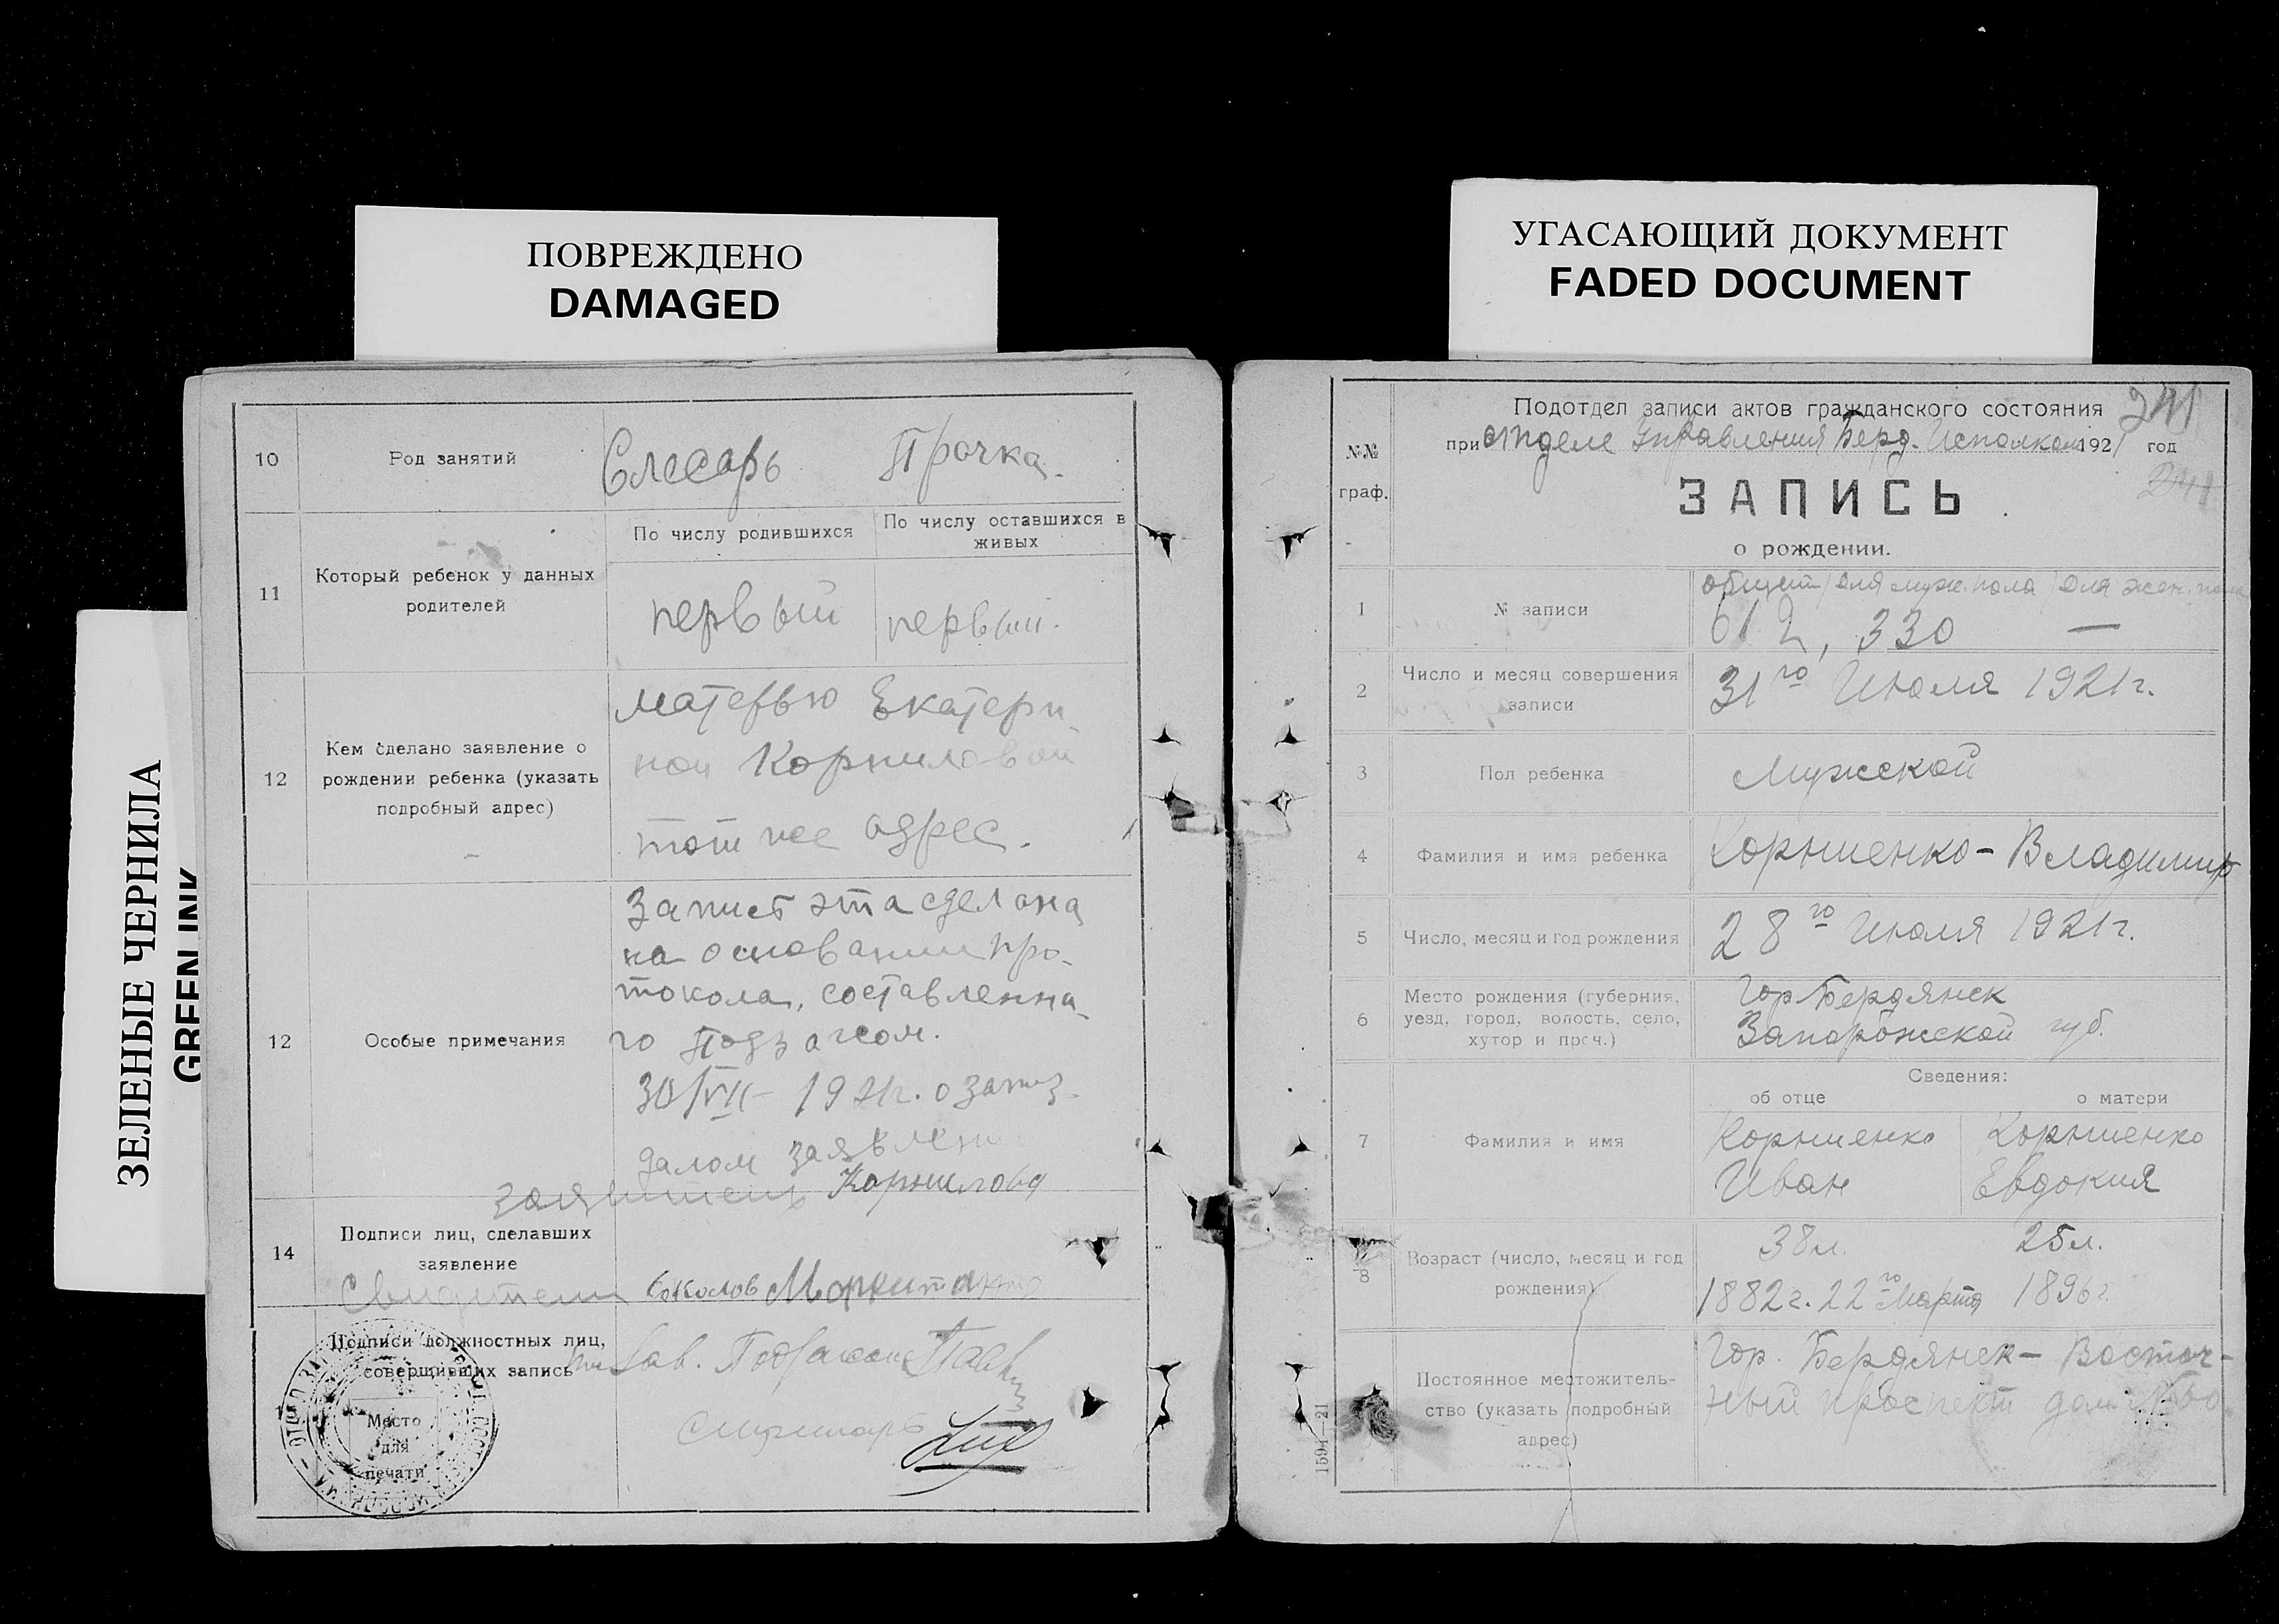 ПОВРЕЖДЕНО
DAMAGED
УГАСАЮЩИЙ ДОКУМЕНТ
FADED DOCUMENT
ЗЕЛЕНЫЕ ЧЕРНИЛА
GREEN INK
10
Род занятий
Слесарь Прачка.
11
Который ребенок у данных
родителей
По числу родившихся
По числу оставшихся в
живых
первый
первый.
12
Кем сделано заявление о
рождении ребенка (указать
подробный адрес)
матерью Екатери
ной Корниловой
тот же адрес.
12
Особые примечания
Запись эта сделана
на основании про-
токола, составленна
го Подзагсом.
30/VII- 1921г. о запоз
далом заявлени
Корнилова
14
Подписи лиц, сделавших
заявление
Свидетели Соколов
Подписи должностных лиц,
совершивших запись
Зав. Подзагсом
Место
для
печати
241
241
№№
граф.
Подотдел записи актов гражданского состояния
при отделе Управления Берд. Исполком 1921 год
ЗАПИСЬ
о рождении.
1
№ записи
общий/для муж. пола/для жен. пола
612, 330 —
2
Число и месяц совершения
записи
31го Июля 1921г.
3
Пол ребенка
Мужской
4
Фамилия и имя ребенка
Корниенко- Владимир
5
Число, месяц и год рождения
28го Июля 1921г.
6
Место рождения (губерния,
уезд, город, волость, село,
хутор и проч.)
Гор Бердянск
Запорожской губ.
7
Фамилия и имя
Сведения:
об отце
о матери
Корниенко
Иван
Корниенко
Евдокия
8
Возраст (число, месяц и год
рождения)
38л. 25л.
1882г. 22го Марта 1896г
Постоянное местожитель-
ство (указать подробный
адрес)
Гор. Бердянск- Восточ-
ный проспект дом
1594—21